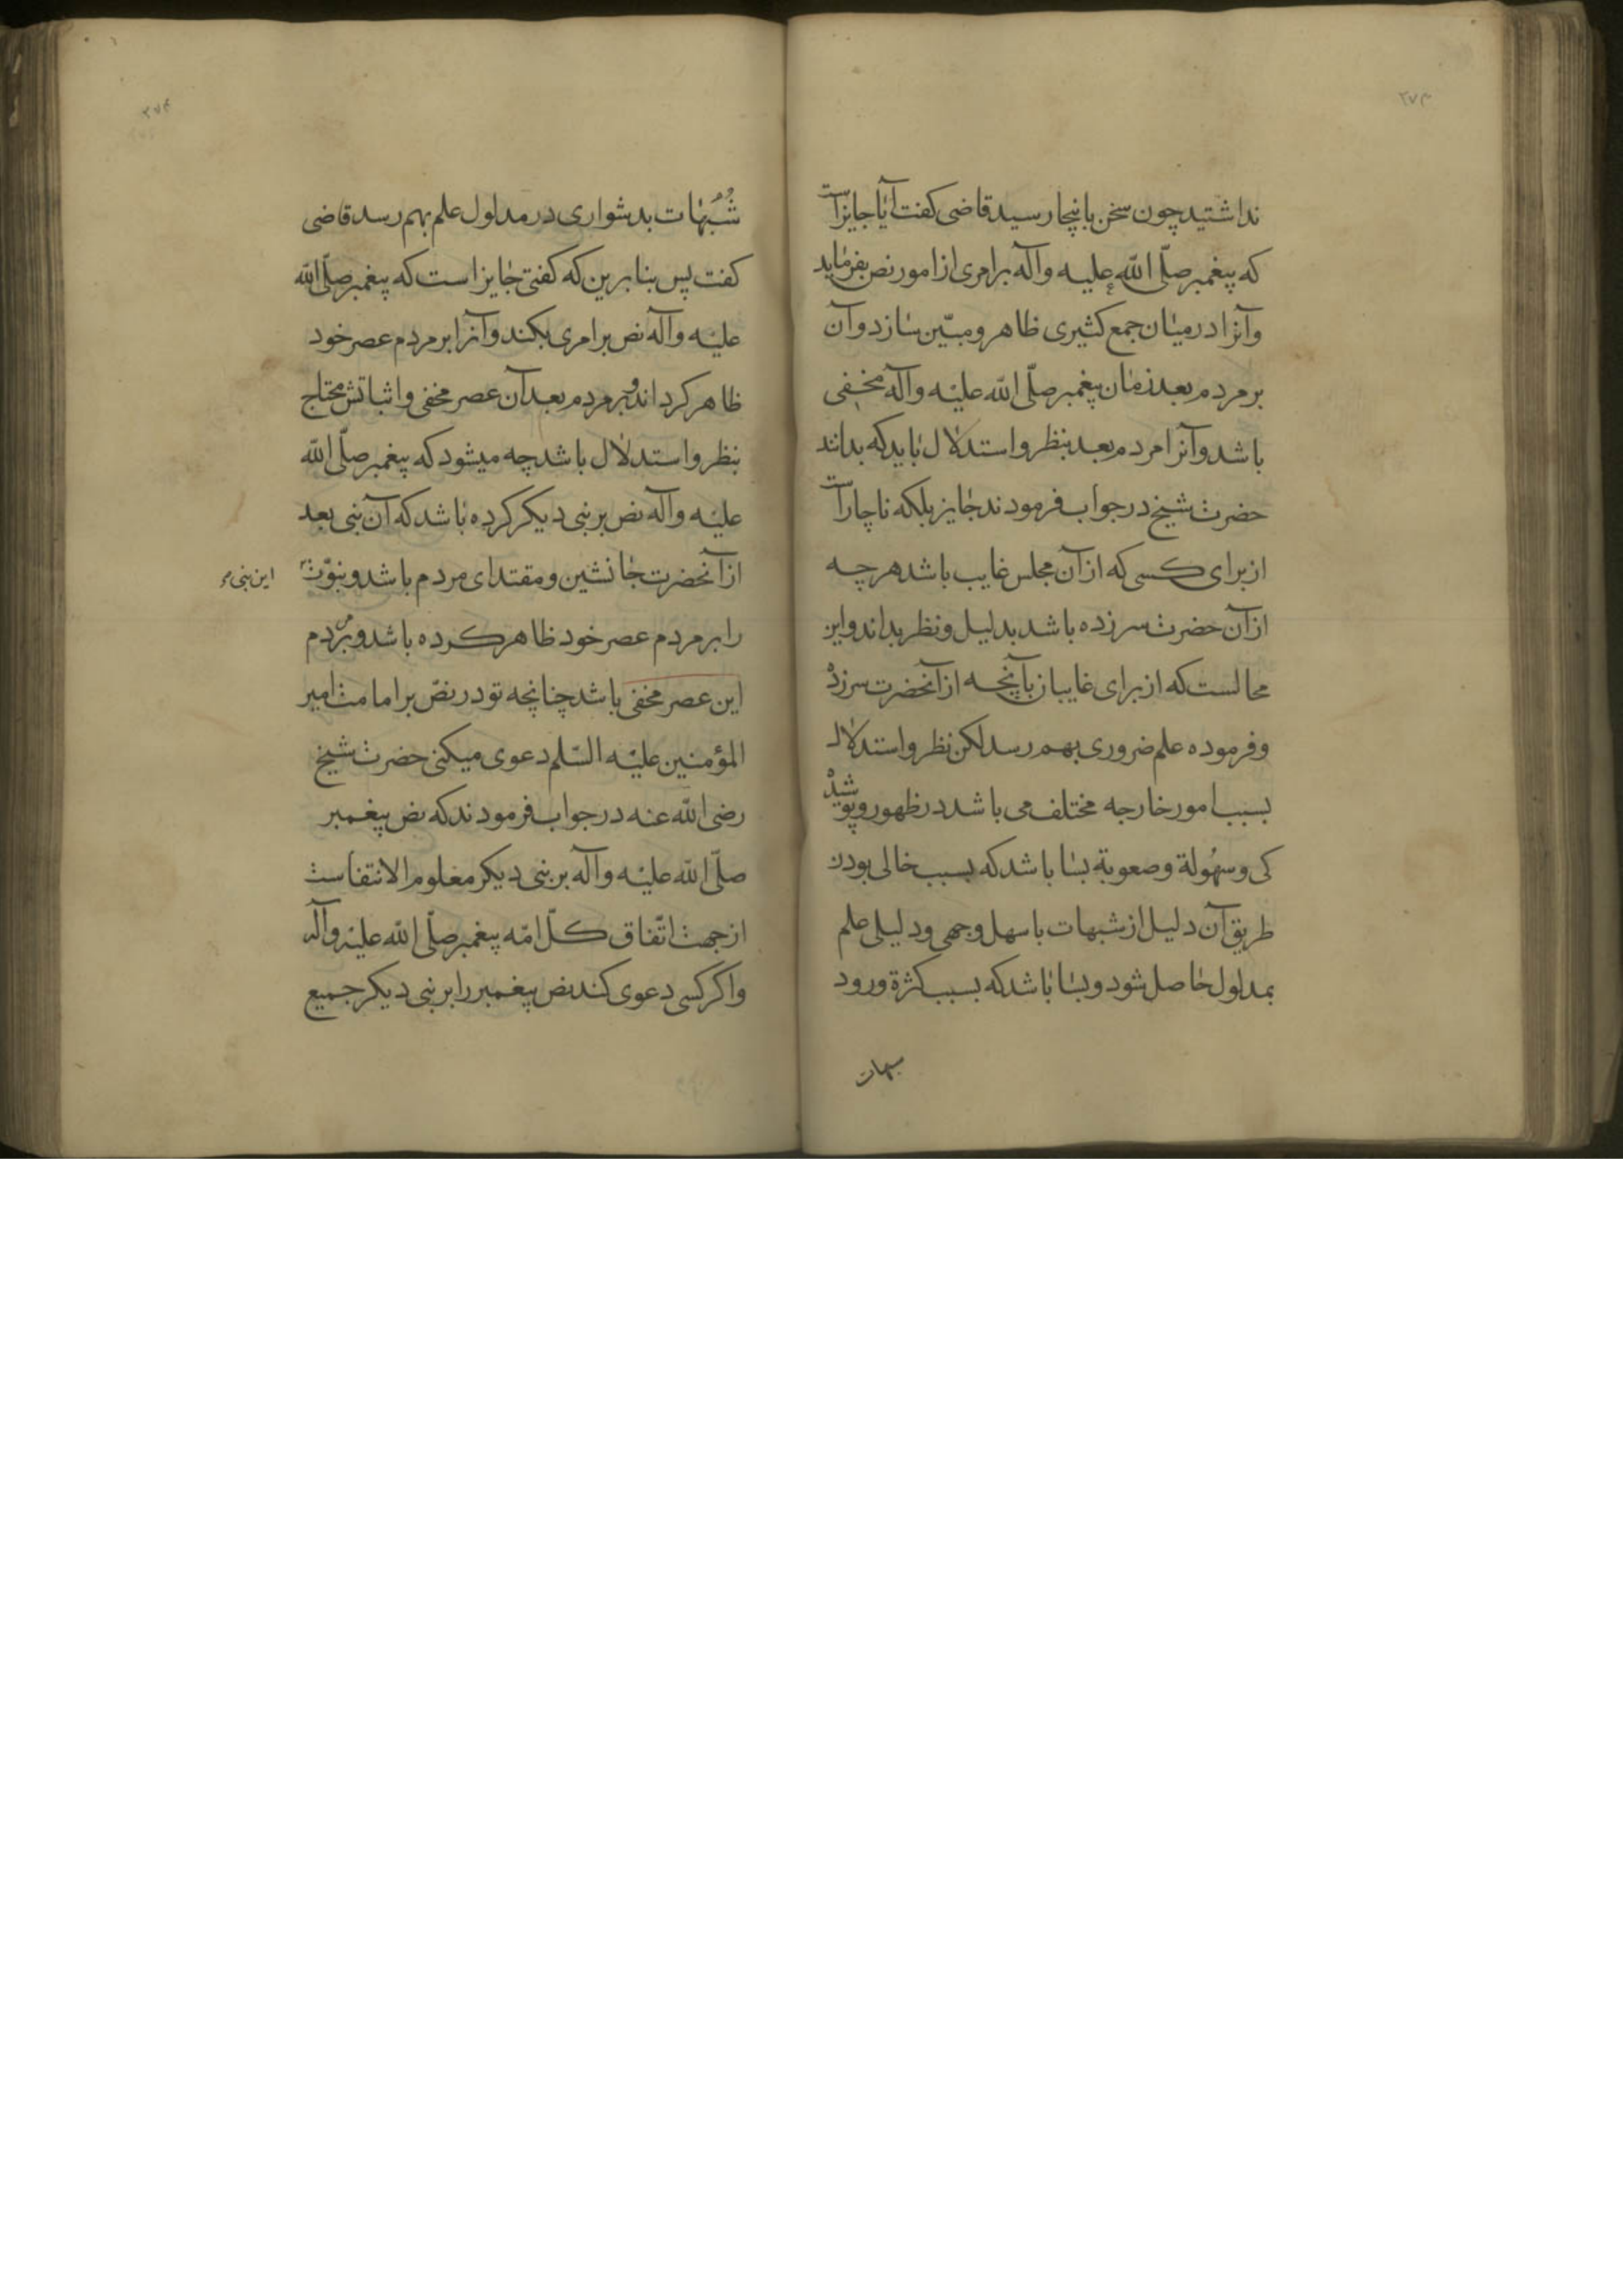 ۲۷۳
نداشتید چون سخن باینجا رسید قاضی کفت آیا جایزاست
که پیغمبر صلّی اللّه علیه وآله برامری از امور نص بفرماید
وآنرا درمیان جمع کثیری ظاهر ومبیّن سازد وآن
بر مردم بعد زمان پیغمبر صلّی اللّه علیه وآله مخفی
باشد وآنرا مردم بعد بنظر واستدلال باید که بدانند
حضرت شیخ در جواب فرمودند جایز بلکه ناچاراست
از برای کسی که از آن مجلس غایب باشد هر چه
از آن حضرت سرزده باشد بدلیل ونظر بداند واین
محالست که از برای غایبان بآنچه از آنحضرت سرزده
وفرموده علم ضروری بهم رسد لکن نظر واستدلال
بسبب امور خارجه مختلف می باشد در ظهور وپوشید
کی وسهُولة وصعوبة بسا باشد که بسبب خالی بودن
طریق آن دلیل از شبهات باسهل وجهی ودلیلی علم
بمدلول حاصل شود وبسا باشد که بسبب کثرة ورود
شُبُهات بدشواری در مدلول علم بهم رسد قاضی
کفت پس بنابرین که کفتی جایز است که پیغمبر صلّی اللّه
علیه وآله نص برامری بکند وآنرا بر مردم عصر خود
ظاهر کرداند وبر مردم بعد آن عصر مخفی واثباتش محتاج
بنظر واستدلال باشد چه میشود که پیغمبر صلّی اللّه
علیه وآله نص بر نبی دیکر کرده باشد که آن نبی بعد
از آنحضرت جانشین ومقتدای مردم باشد ونبوّت
این نبی
را بر مردم عصر خود ظاهر کرده باشد وبر مردم
این عصر مخفی باشد چنانچه تو در نصّ بر امامت امیر
المؤمنین علیه السّلم دعوی میکنی حضرت شیخ
رضی اللّه عنه در جواب فرمودند که نص پیغمبر
صلّی اللّه علیه وآله بر نبی دیکر معلوم الانتفاست
از جهت اتّفاق کلّ امّه پیغمبر صلّی اللّه علیه وآله
واکر کسی دعوی کند نص پیغمبر را بر نبی دیکر جمیع